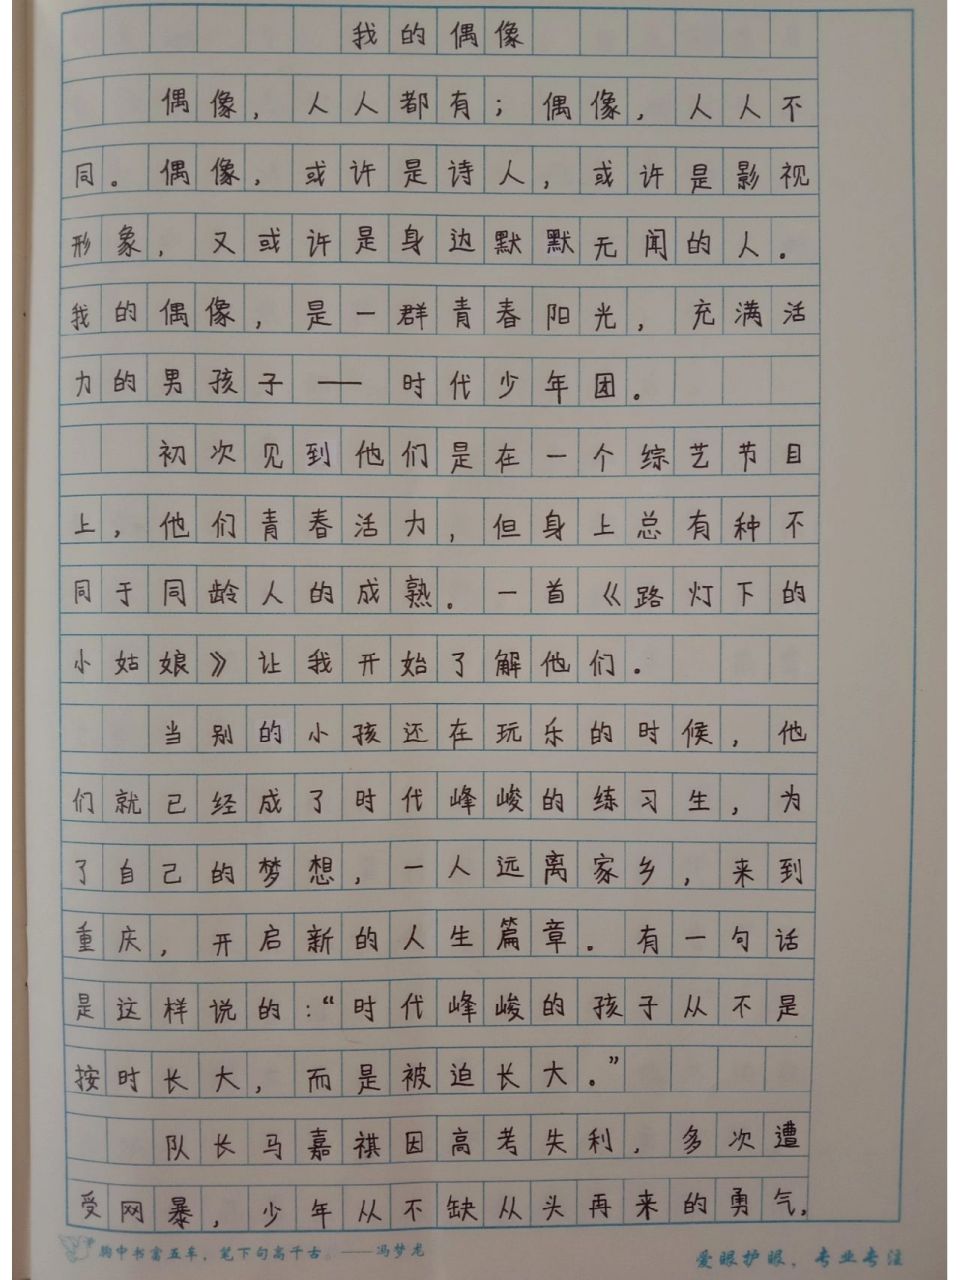 我的偶像
偶像，人人都有；偶像，人人不
同。偶像，或许是诗人，或许是影视
形象，又或许是身边默默无闻的人。
我的偶像，是一群青春阳光，充满活
力的男孩子——时代少年团。
初次见到他们是在一个综艺节目
上，他们青春活力，但身上总有种不
同于同龄人的成熟。一首《路灯下的
小姑娘》让我开始了解他们。
当别的小孩还在玩乐的时候，他
们就已经成了时代峰峻的练习生，为
了自己的梦想，一人远离家乡，来到
重庆，开启新的人生篇章。有一句话
是这样说的：“时代峰峻的孩子从不是
按时长大，而是被迫长大。”
队长马嘉祺因高考失利，多次遭
受网暴，少年从不缺从头再来的勇气，
胸中书富五车，笔下句高千古。——冯梦龙
爱眼护眼，专业专注